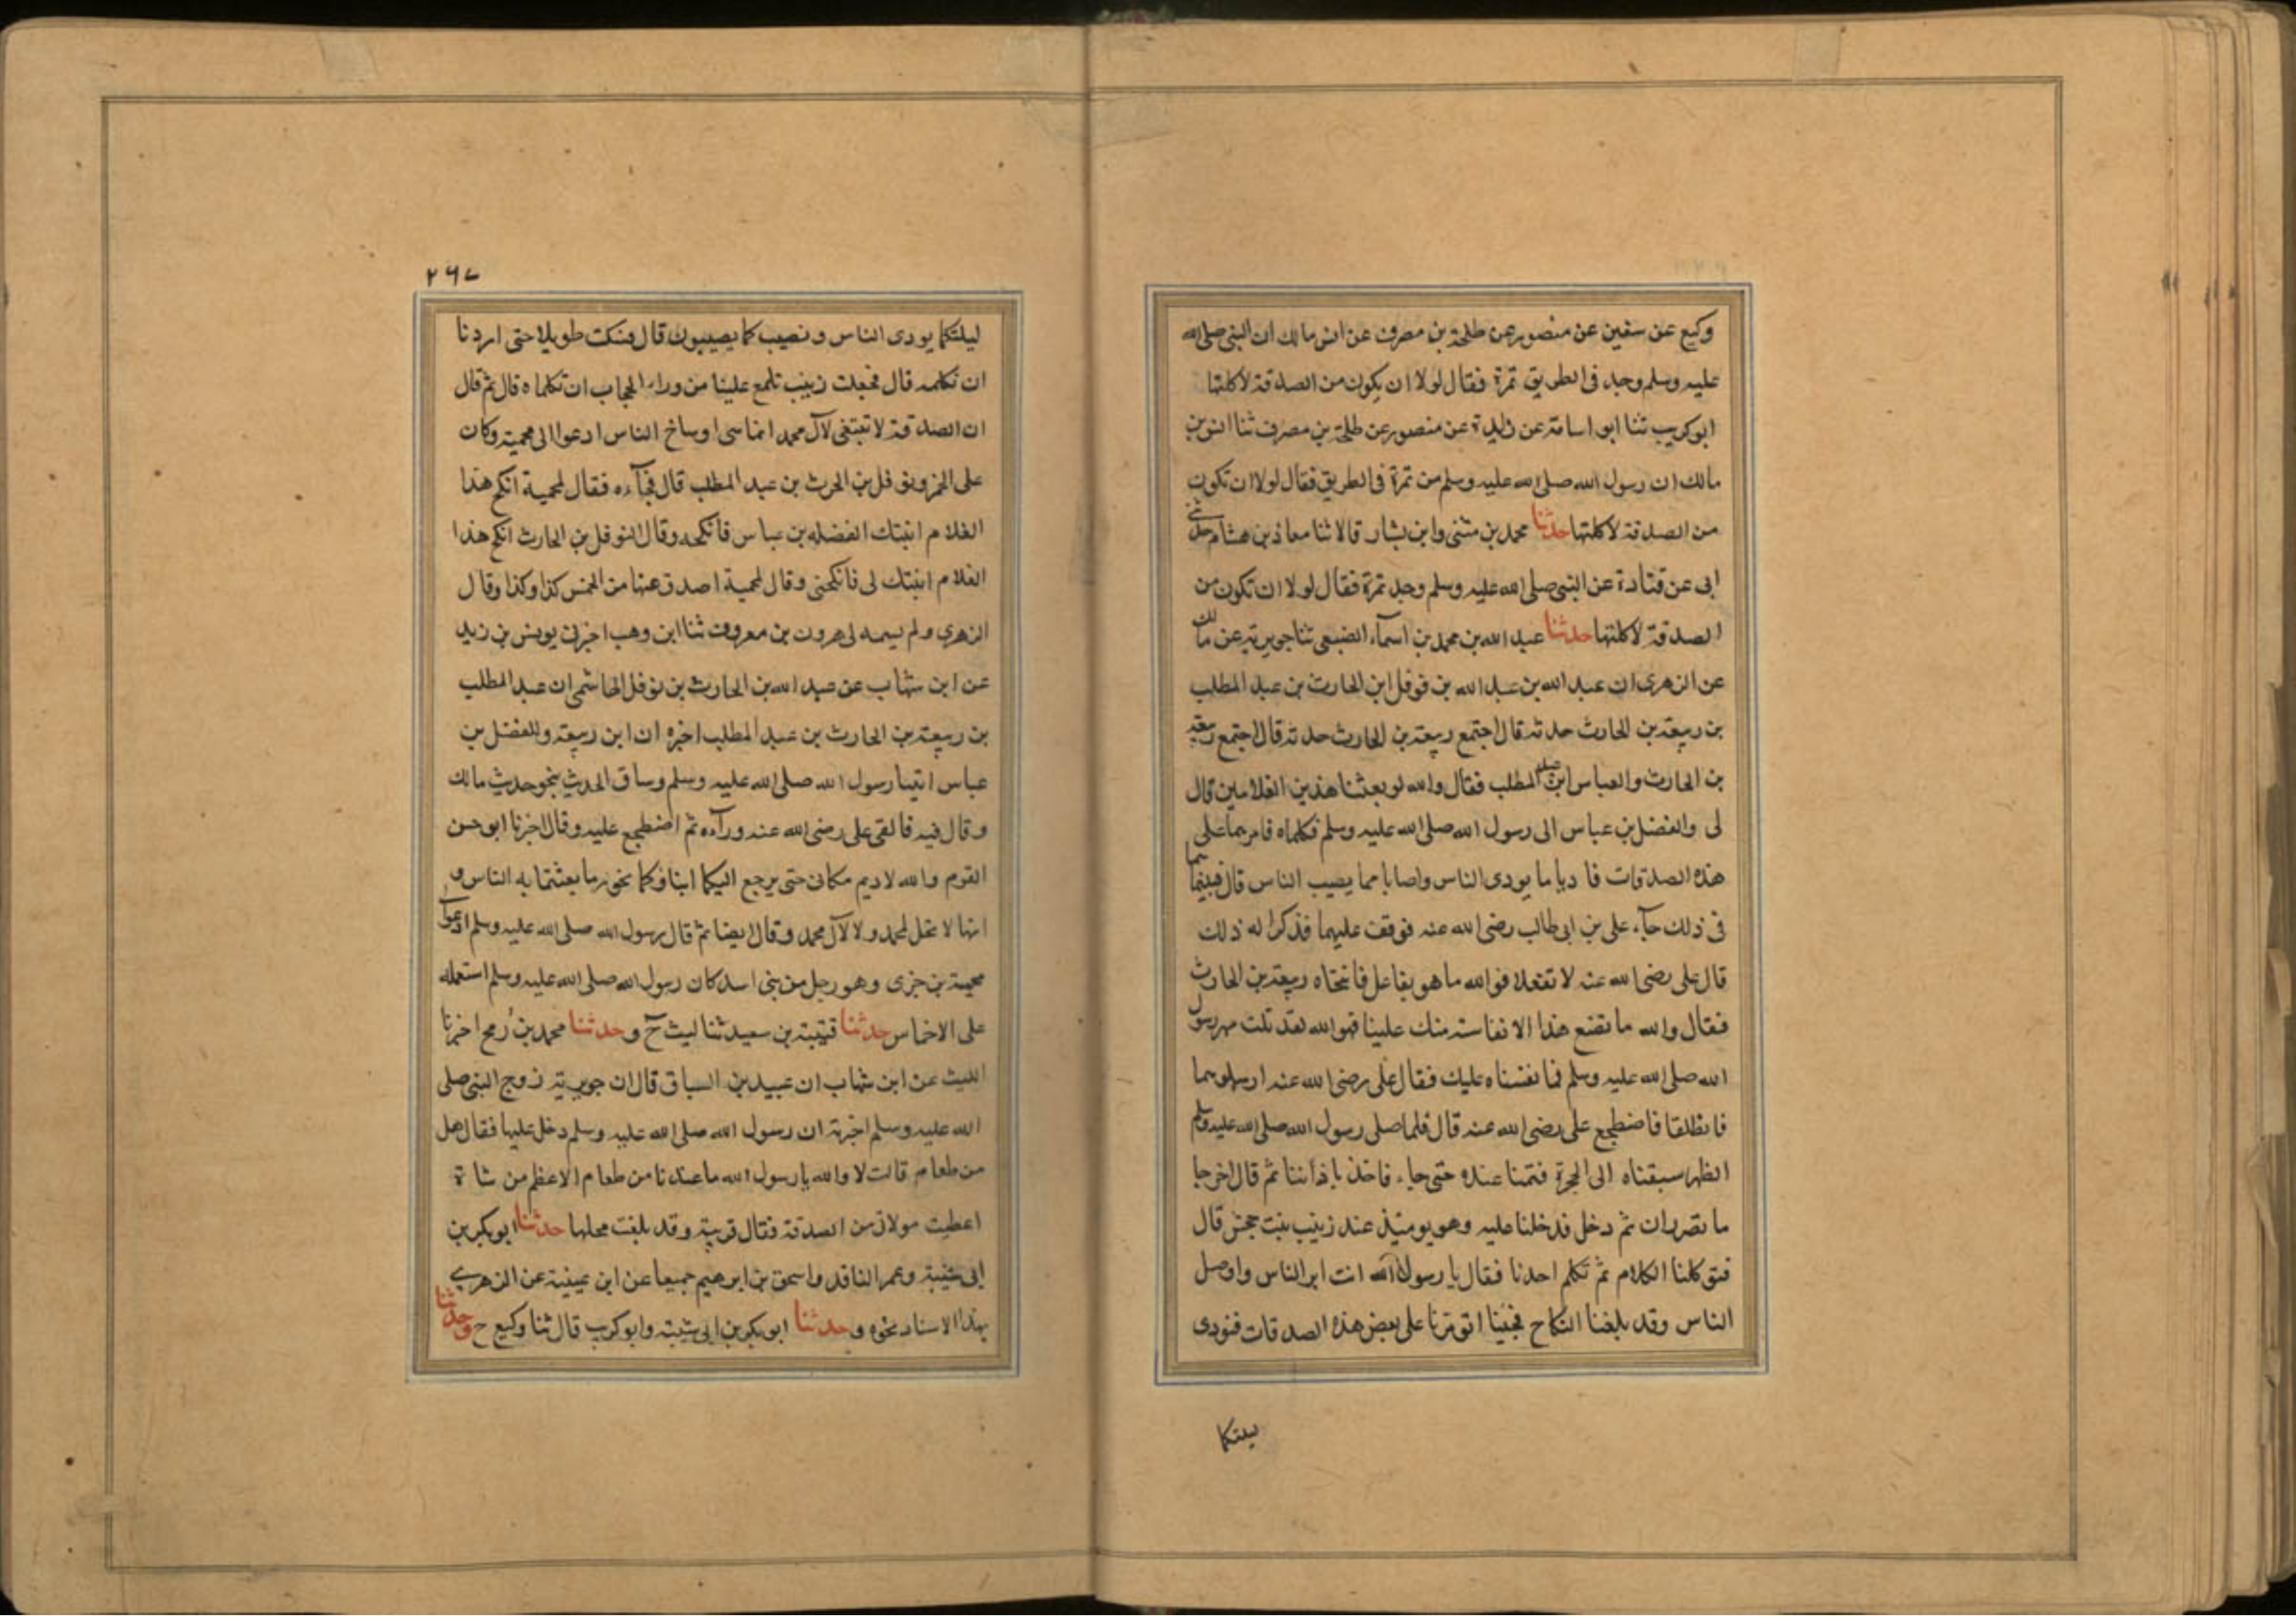 وكيع عن سفين عن منصور عن طلحة بن مصرف عن انس مالك ان النبى صلى الله
عليه وسلم وجد فى الطريق تمرة فقال لولا ان يكون من الصدقة لاكلتها
ابو كريب ثنا ابو اسامة عن زايدة عن منصور عن طلحة بن مصرف ثنا انس بن
مالك ان رسول الله صلى الله عليه وسلم من تمرة فى الطريق فقال لولا ان تكون
من الصدقة لاكلتها حدثنا محمد بن مثنى وابن بشار قالا ثنا معاذ بن هشام حدثنى
ابى عن قتادة عن النبى صلى الله عليه وسلم وجد تمرة فقال لولا ان تكون من
الصدقة لاكلتها حدثنا عبد الله بن محمد بن اسمآء الضبعى ثنا جويرية عن مالك
عن الزهرى ان عبد الله بن عبد الله بن نوفل ابن الحارث بن عبد المطلب
بن ربيعة بن الحارث حدثه قال اجتمع ربيعة بن الحارث حدثه قال اجتمع ربيعة
بن الحارث والعباس ابن عبد المطلب فقال والله لو بعثنا هذين الغلامين قال
لى والفضل بن عباس الى رسول الله صلى الله عليه وسلم فكلماه فامرهما على
هذه الصدقات فاديا ما يودى الناس واصابا مما يصيب الناس قال فبينما هما
فى ذلك جآء على بن ابى طالب رضى الله عنه فوقف عليهما فذكرا له ذلك
قال على رضى الله عنه لا تفعلا فوالله ما هو بفاعل فانتحاه ربيعة بن الحارث
فقال والله ما تصنع هذا الا نفاسة منك علينا فوالله لقد نلت صهر رسول
الله صلى الله عليه وسلم فما نفسناه عليك فقال على رضى الله عنه ارسلوهما
فانطلقا فاضطجع على رضى الله عنه قال فلما صلى رسول الله صلى الله عليه وسلم
الظهر سبقناه الى الحجرة فقمنا عنده حتى جاء فاخذ باذاننا ثم قال اخرجا
ما تصرران ثم دخل فدخلنا عليه وهو يومئذ عند زينب بنت جحش قال
فتوكلنا الكلام ثم تكلم احدنا فقال يا رسول الله انت ابر الناس واوصل
الناس وقد بلغنا النكاح فجئنا اتومرنا على بعض هذه الصدقات فنودى
ليلتكما
٢٦٧
ليلتكما يودى الناس ونصيب كما يصيبون قال فسكت طويلا حتى اردنا
ان نكلمه قال فجعلت زينب تلمع علينا من وراء الحجاب ان تكلماه قال ثم قال
ان الصدقة لا تبتغى لآل محمد انما سى اوساخ الناس ادعوا الى محمية وكان
على الخمر ونوفل بن الحرث بن عبد المطلب قال فجآءه فقال لمحمية انكح هذا
الغلام ابنتك الفضل بن عباس فانكحه وقال لنوفل بن الحارث انكح هذا
الغلام ابنتك لى فانكحنى وقال لمحمية اصدق عنها من الخمس كذا وكذا وقال
الزهرى ولم يسمه لى هرون بن معروف ثنا ابن وهب اخبرنى يونس بن زيد
عن ابن شهاب عن عبد الله بن الحارث بن نوفل الهاشمى ان عبد المطلب
بن ربيعة بن الحارث بن عبد المطلب اخبره ان ابن ربيعة وللفضل بن
عباس ائتيا رسول الله صلى الله عليه وسلم وساق الحديث بنحو حديث مالك
وقال فيه فالقى على رضى الله عنه ورآءه ثم اضطجع عليه وقال اخبرنا ابو حسن
القوم والله لا ديم مكانى حتى يرجع اليكما ابناؤكما بحور ما بعثتما به الناس و
انها لا تحل لمحمد ولا لآل محمد وقال ايضا ثم قال رسول الله صلى الله عليه وسلم ادعوا لى
محمية بن جزى وهو رجل من بنى اسد كان رسول الله صلى الله عليه وسلم استعمله
على الاخماس حدثنا قتيبة بن سعيد ثنا ليث ح وحدثنا محمد بن رمح اخبرنا
الليث عن ابن شهاب ان عبيد بن السباق قال ان جويرية زوج النبى صلى
الله عليه وسلم اخبرته ان رسول الله صلى الله عليه وسلم دخل عليها فقال هل
من طعام قالت لا والله يا رسول الله ما عندنا من طعام الا عظم من شاة
اعطيت مولاتى من الصدقة فقال قربية وقد بلغت محلها حدثنا ابو بكر بن
ابى شيبة وعمر الناقد واسحق بن ابرهيم جميعا عن ابن عيينة عن الزهرى
بهذا الاسناد نحوه وحدثنا ابو بكر بن ابى شيبة وابو كرب قال ثنا وكيع ح وحدثنا